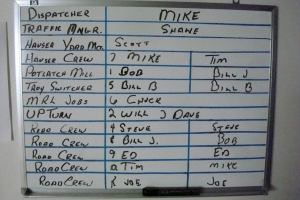 DISPATCHER MIKE
TRAFFIC MNGR. SHANE
HAUSER YARD MGR. SCOTT
HAUSER CREW 7 MIKE TIM
POTLATCH MILL 1 BOB BILL J
TROY SWITCHER 5 BILL B BILL B
MRL JOBS 6 CHUCK
UPTURN 2 WILL J DAVE
ROAD CREW 4 STEVE STEVE
ROAD CREW 8 BILL J. BOB
ROAD CREW 9 ED ED
ROAD CREW TIM MIKE
ROAD CREW JOE JOE